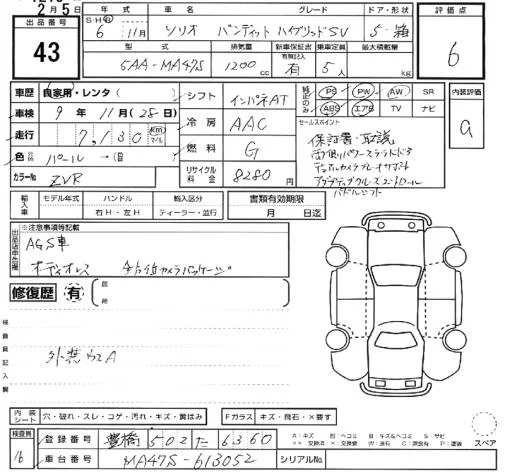 2月5日
出品番号
43
年式 車名 グレード ドア・形状
S・H・R 6年 11月 ソリオ バンディット ハイブリッドSV 5・箱
型式 排気量 新車保証書 乗車定員 最大積載量
有無記入
5AA-MA47S 1200cc 有 5人 kg
評価点
6
車歴 自家用・レンタ( )
車検 9年 11月(28日)
走行 7,130 km マイル
色 パール →(
カラーNo ZVR
シフト インパネAT
冷房 AAC
燃料 G
リサイクル料金 8280円
純正のみ PS PW AW SR
ABS エアB TV ナビ
セールスポイント
保証書・取説
両側パワースライドドア
デュアルカメラブレーキサポート
アダプティブクルーズコントロール
パドルシフト
内装評価
a
輸入車 モデル年式 ハンドル 輸入区分
右H・左H ディーラー・並行
書類有効期限
月 日迄
※注意事項等記載
AGS車
オーディオレス 全方位カメラパッケージ
修復歴 有
検査員記入欄
外装ウスA
内装シート 穴・破れ・スレ・コゲ・汚れ・キズ・黄ばみ
Fガラス キズ・飛石・×要す
検査員
16
登録番号 豊橋 502 た 6360
車台番号 MA47S-613052
シリアルNo.
A:キズ U:ヘコミ B:キズ&ヘコミ S:サビ
××:交換済 ×:要交換 W:波有 C:腐食有 P:塗装
スペア